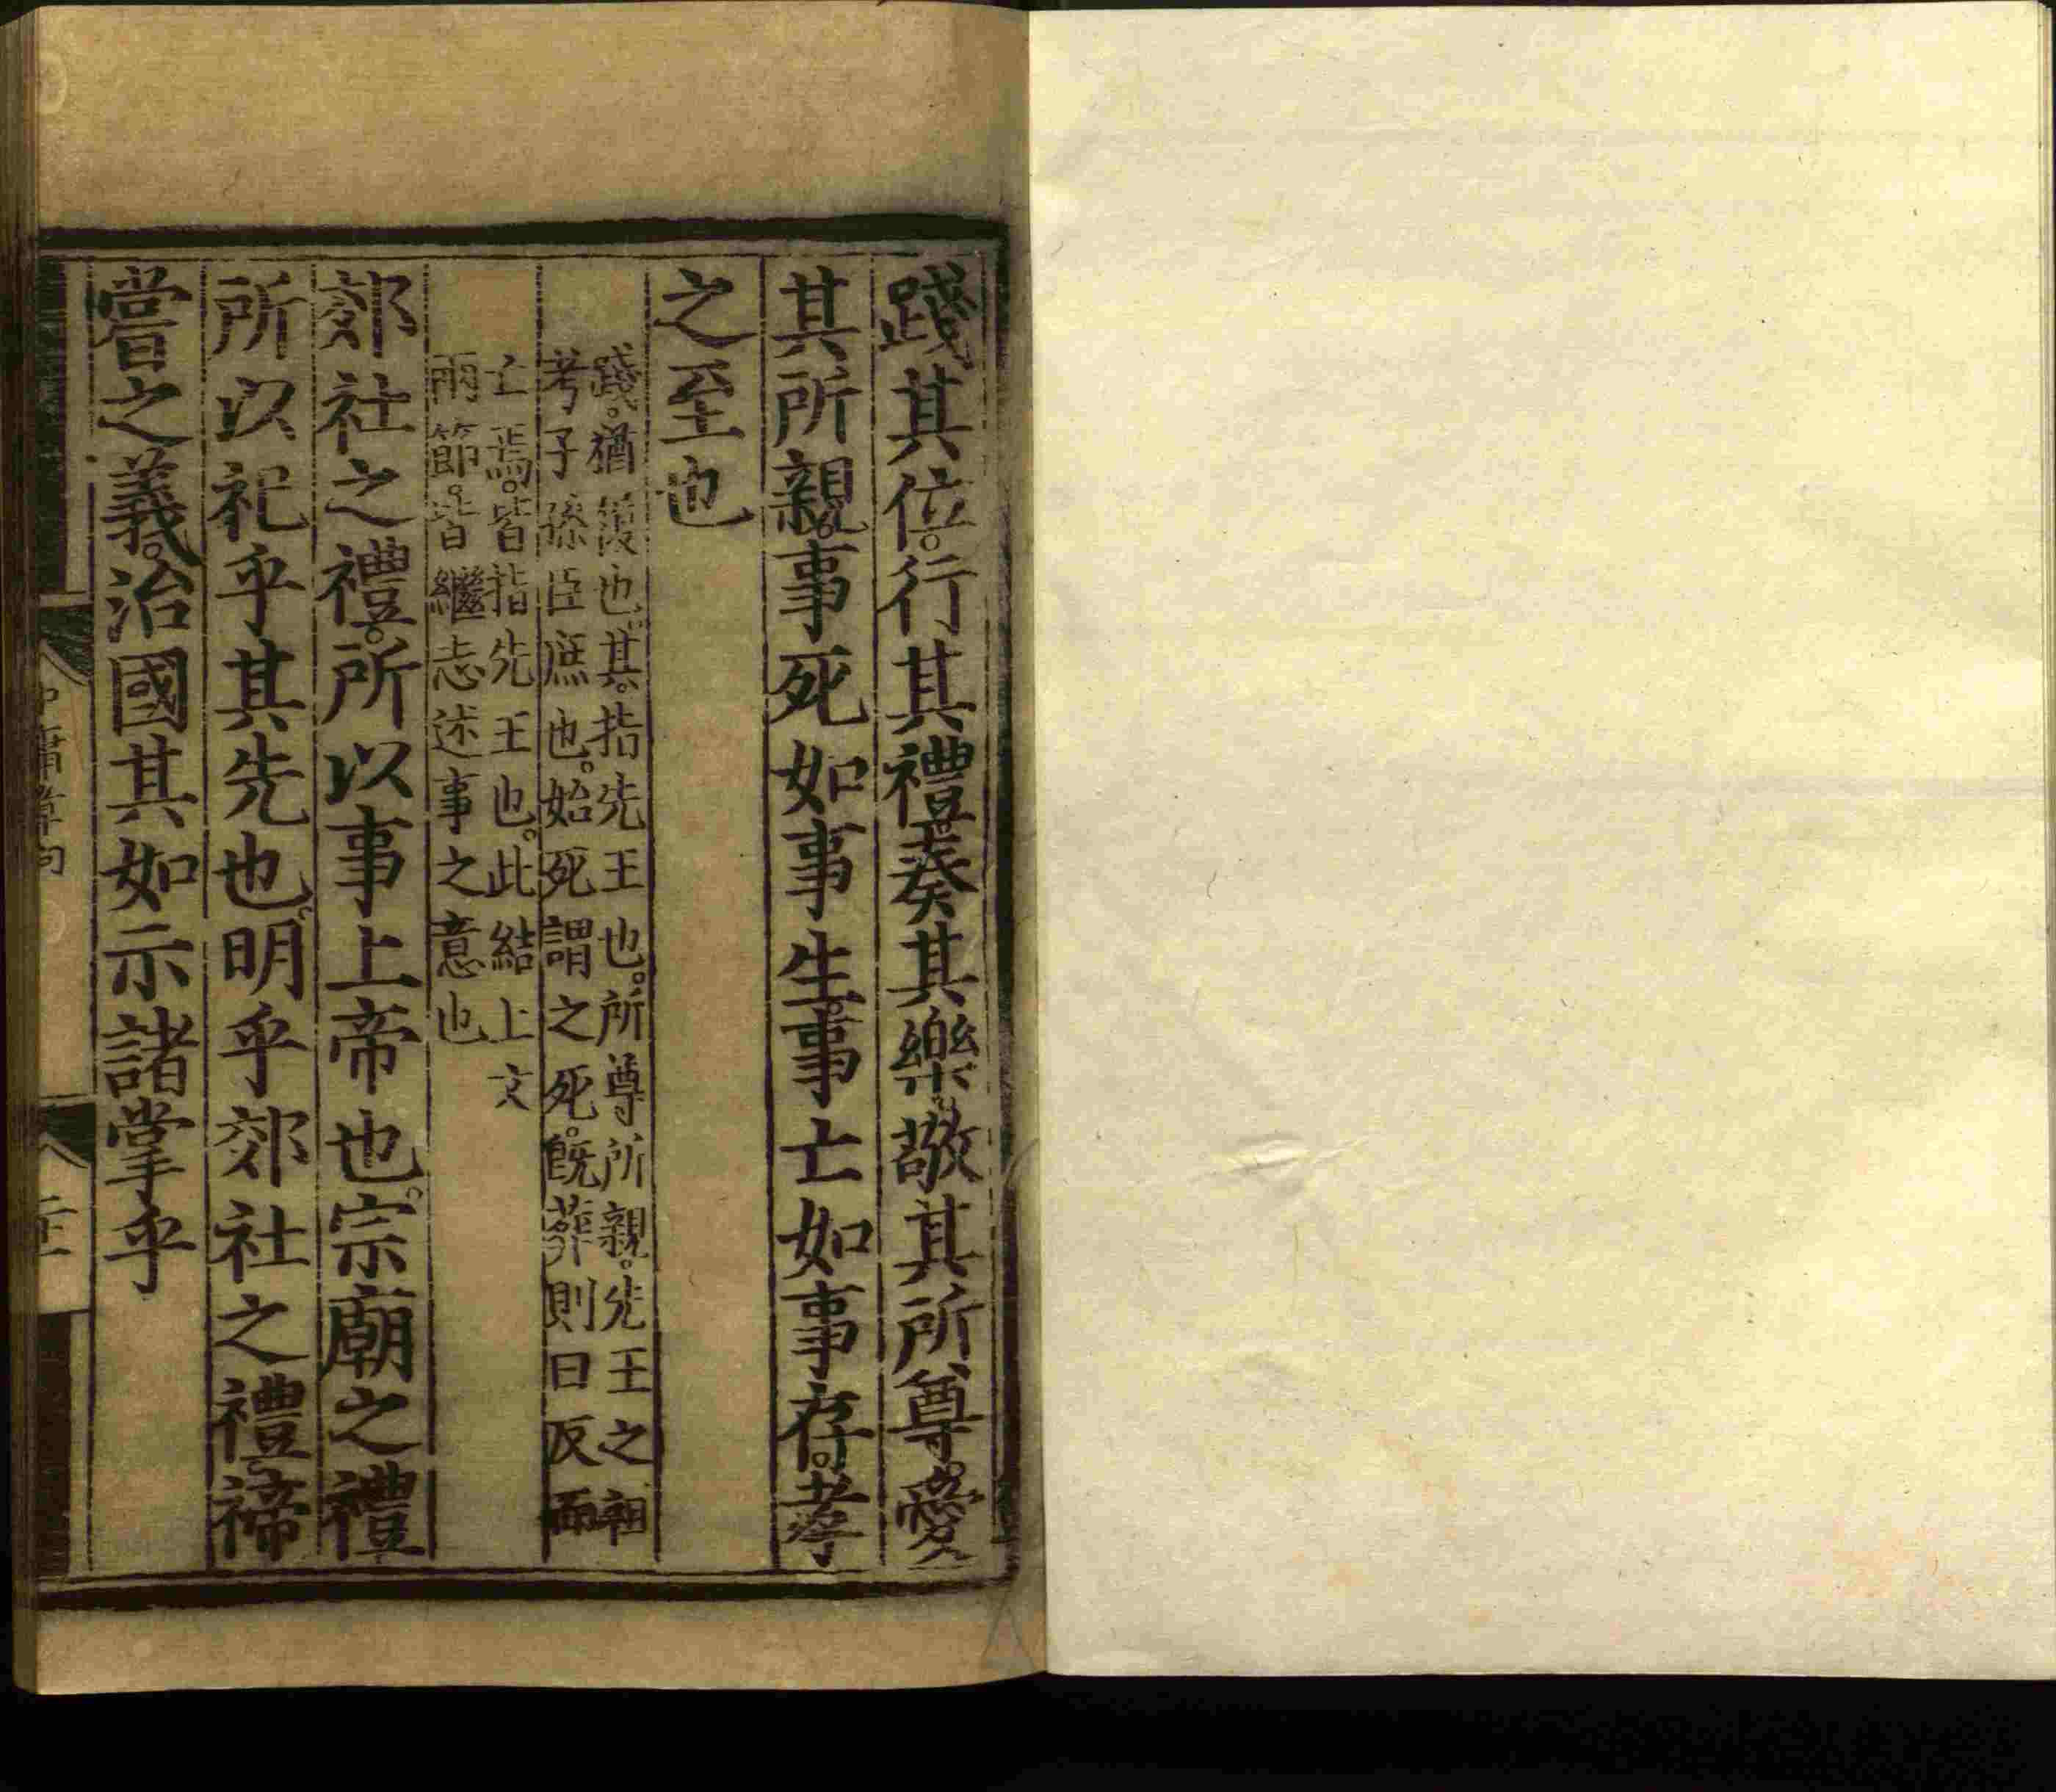 踐其位。行其禮。奏其樂。敬其所尊。愛
其所親。事死如事生。事亡如事存。孝
之至也
踐。猶履也。其。指先王也。所尊所親。先王之祖
考子孫臣庶也。始死謂之死。旣葬則曰反而
亡焉。皆指先王也。此結上文
兩節。皆繼志述事之意也
郊社之禮。所以事上帝也。宗廟之禮
所以祀乎其先也。明乎郊社之禮。禘
嘗之義。治國其如示諸掌乎
中庸章句
二十一